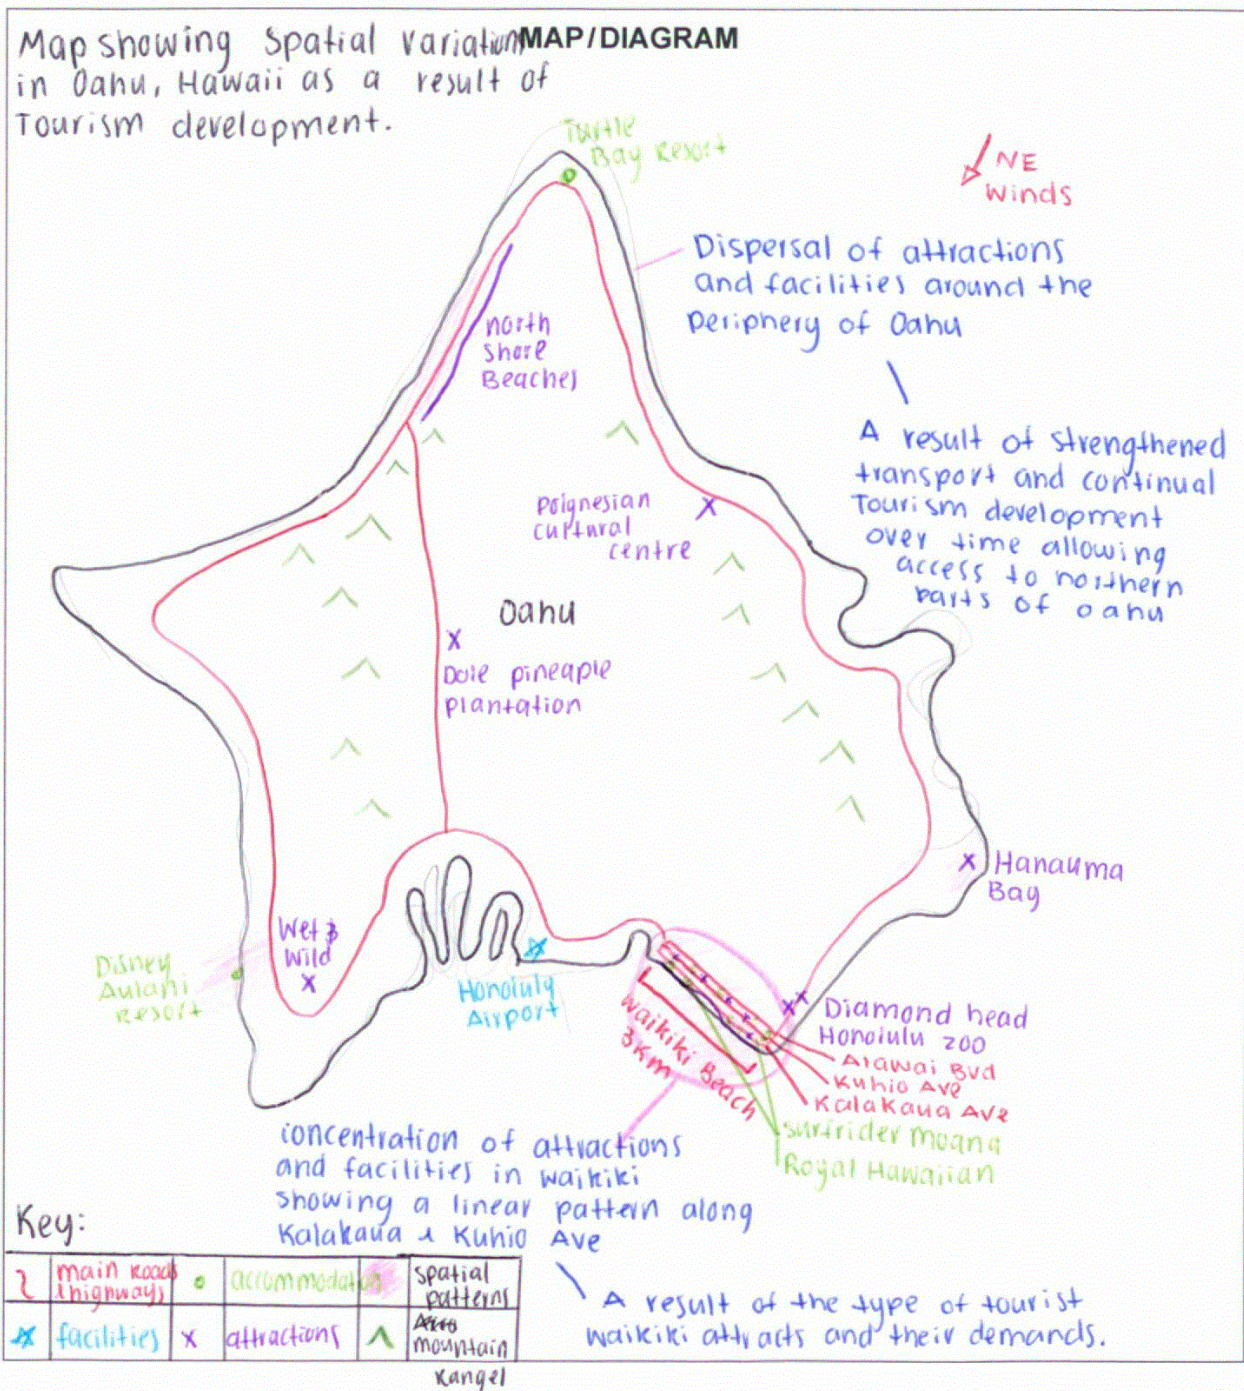 MAP/DIAGRAM
Map showing spatial variation
in Oahu, Hawaii as a result of
Tourism development.
Turtle
Bay Resort
NE
winds
Dispersal of attractions
and facilities around the
periphery of Oahu
A result of strengthened
transport and continual
Tourism development
over time allowing
access to northern
parts of oahu
north
shore
Beaches
Polgnesian
cultural
centre
Oahu
Dole pineaple
plantation
Hanauma
Bay
Wet &
wild
Disney
Aulani
Resort
Honolulu
Airport
Waikiki Beach
3km
Diamond head
Honolulu zoo
Alawai Bvd
Kuhio Ave
Kalakaua Ave
surfrider moana
Royal Hawaiian
concentration of attractions
and facilities in waikiki
showing a linear pattern along
Kalakaua & Kuhio Ave
A result of the type of tourist
waikiki attracts and their demands.
Key:
main roads
& highways
accommodation
spatial
patterns
facilities
attractions
mountain
ranges